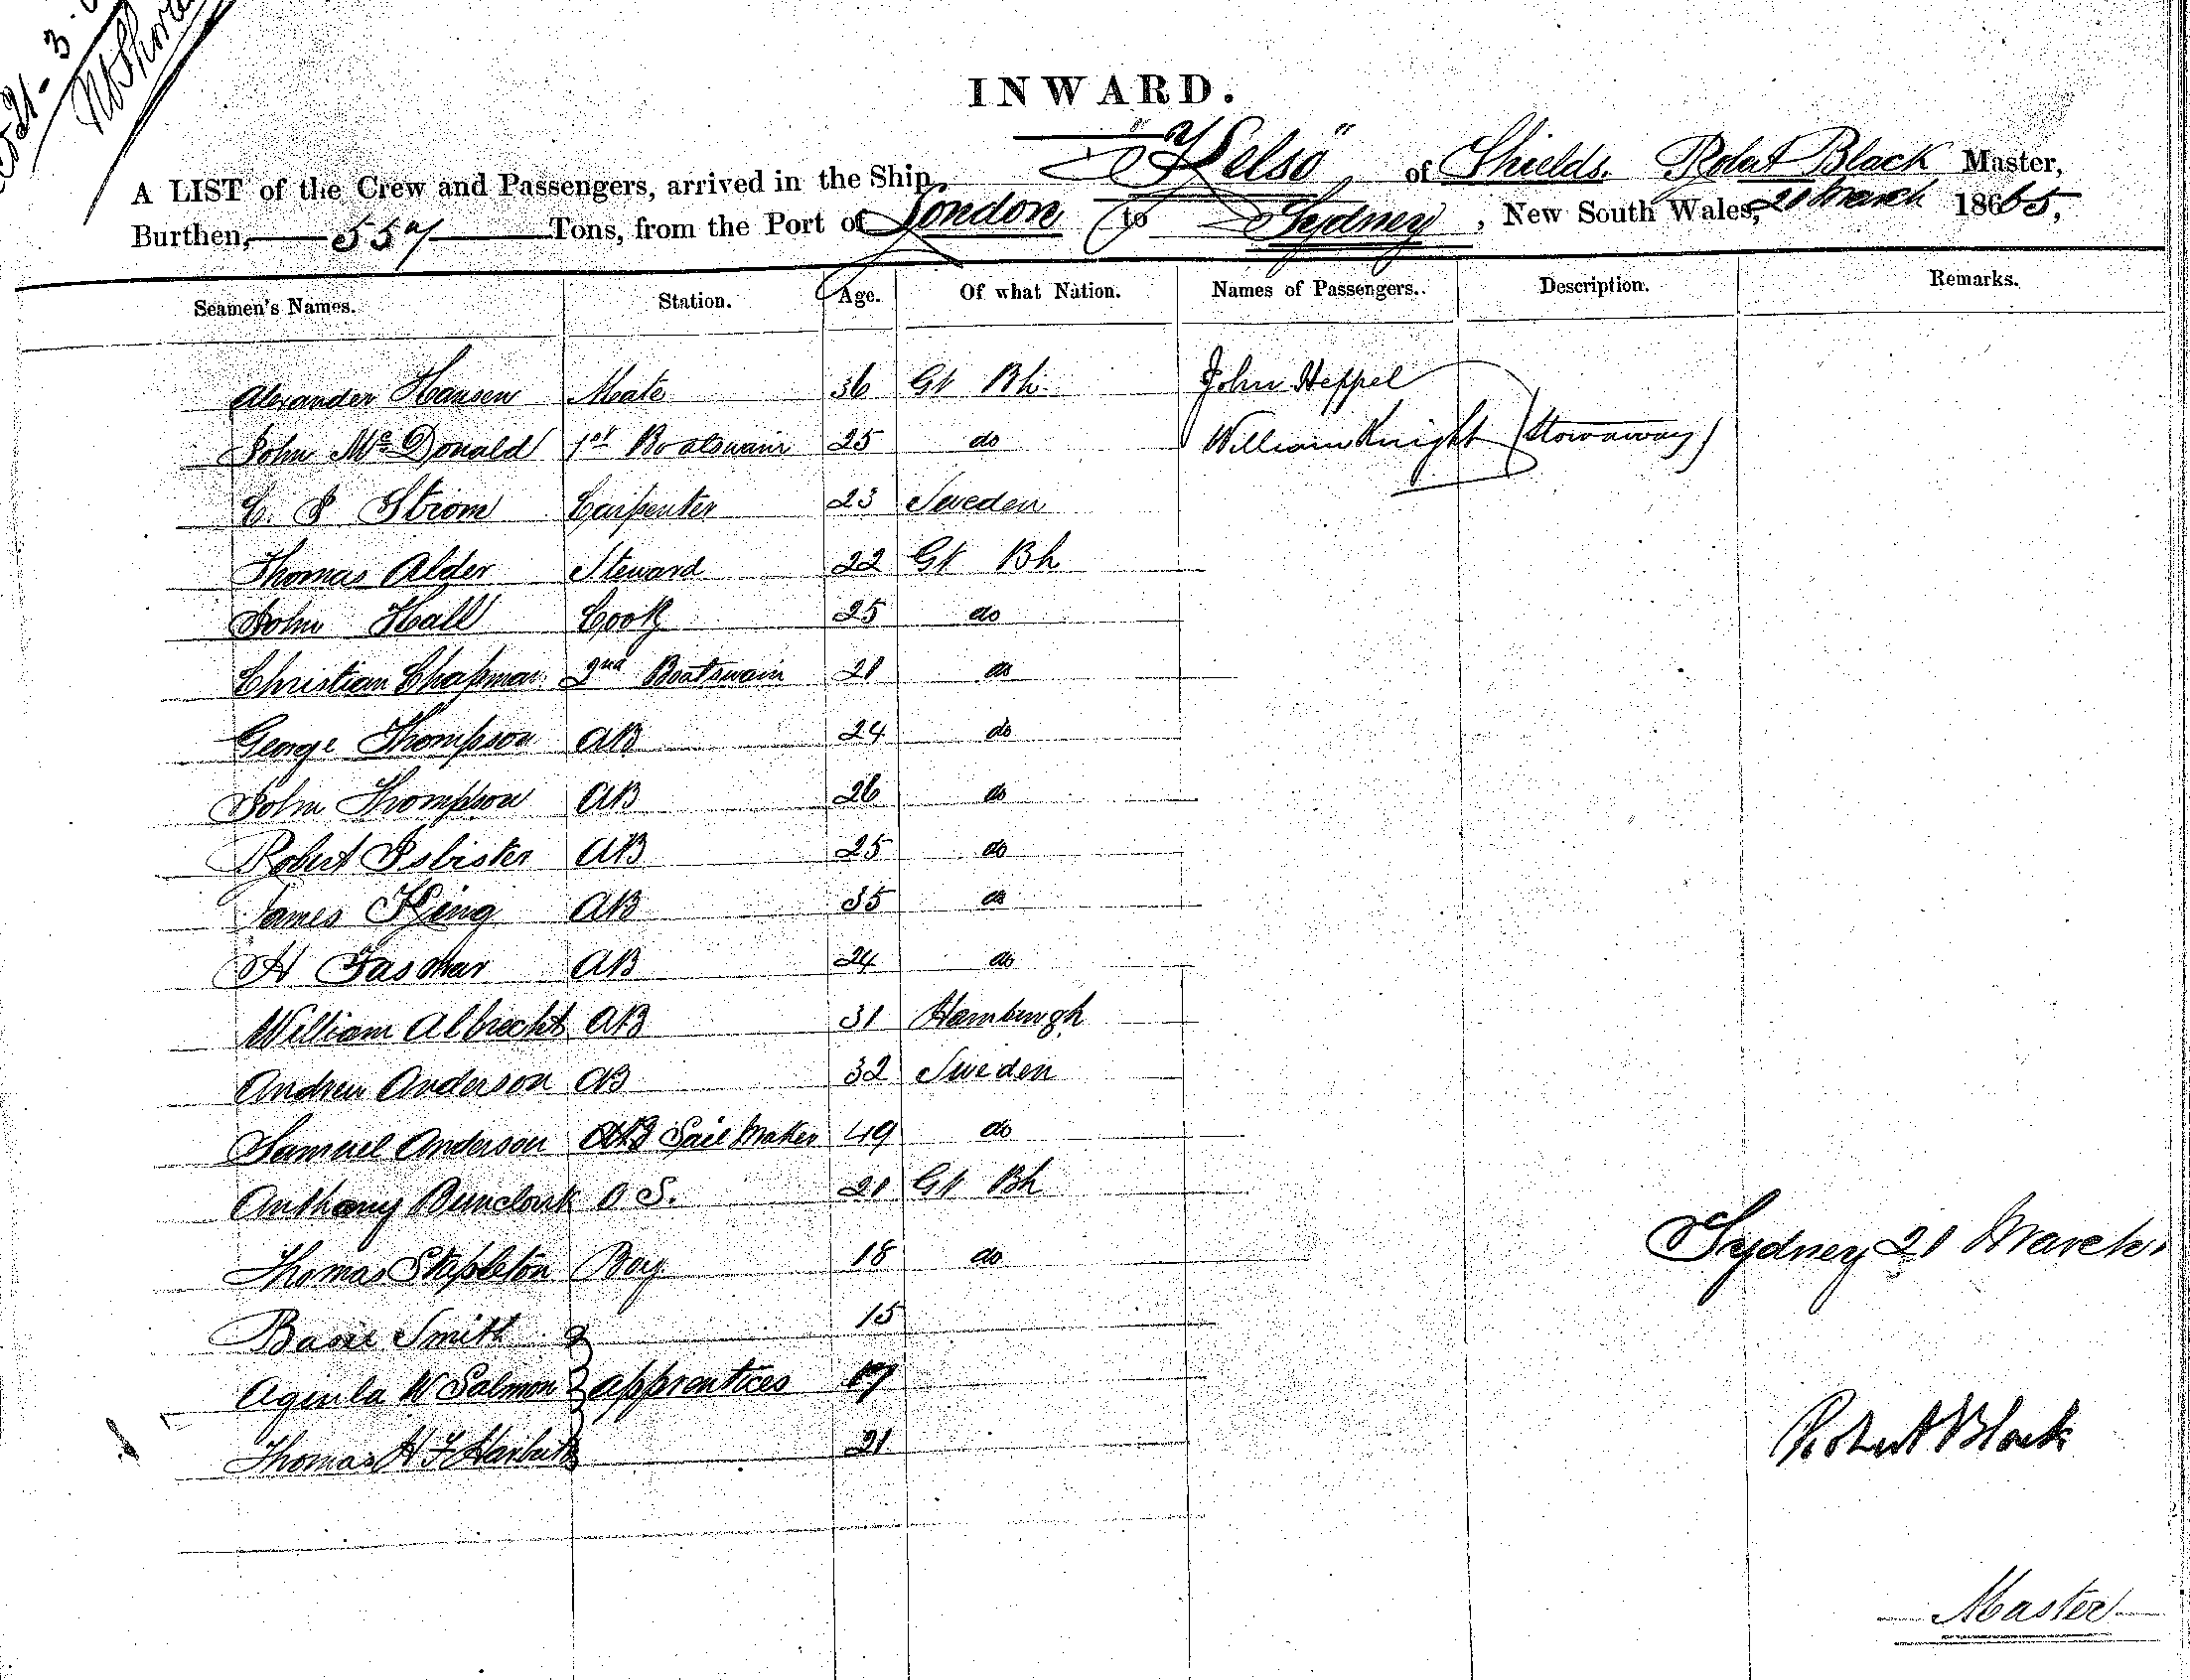 21-3-
INWARD.
A LIST of the Crew and Passengers, arrived in the Ship "Kelso" of Shields. Robert Black Master,
Burthen, 557 Tons, from the Port of London to Sydney, New South Wales, 21 March 1865,
Seamen's Names. Station. Age. Of what Nation. Names of Passengers. Description. Remarks.
Alexander Hansen Mate 36 Gt Bn John Heppel
John McDonald 1st Boatswain 25 do William Knight Stowaway
C. P Strom Carpenter 23 Sweden
Thomas Alder Steward 22 Gt Bn
John Hall Cook 25 do
Christian Chapman 2nd Boatswain 21 do
George Thompson AB 24 do
John Thompson AB 26 do
Robert Isbister AB 25 do
James King AB 35 do
H AB 24 do
William Albrecht AB 31 Hamburgh
Andrew Anderson AB 32 Sweden
Samuel Anderson AB Sail Maker 49 do
Anthony O S. 21 Gt Bn
Thomas Stapleton Boy 18 do
Smith 15
W Salmon apprentices 17
Thomas H F 21
Sydney 21 March
Robert Black
Master